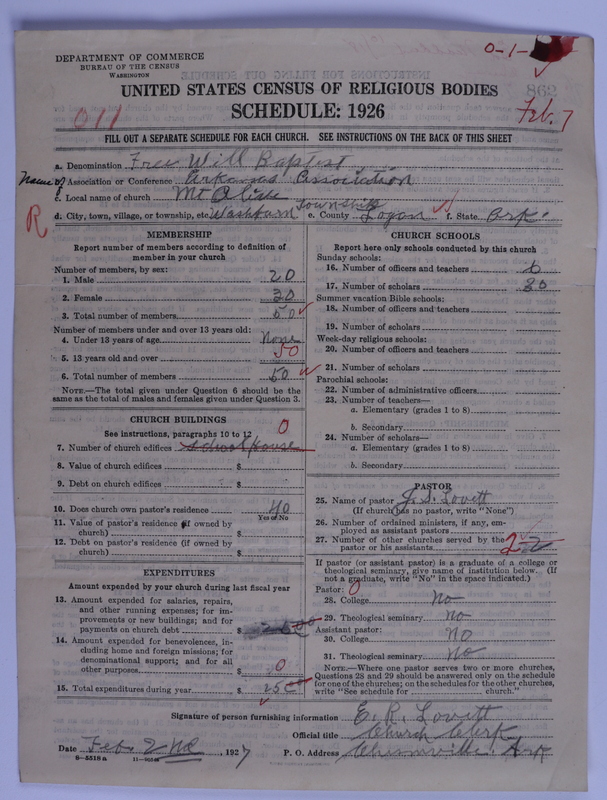 0-1-
DEPARTMENT OF COMMERCE
BUREAU OF THE CENSUS
WASHINGTON
UNITED STATES CENSUS OF RELIGIOUS BODIES
862
SCHEDULE: 1926
011
Feb. 7
FILL OUT A SEPARATE SCHEDULE FOR EACH CHURCH. SEE INSTRUCTIONS ON THE BACK OF THIS SHEET
a. Denomination Free Will Baptist
Name of
b. Association or Conference Arkansas Association
c. Local name of church Mt Olive
Township
d. City, town, village, or township, etc. Washburn e. County Logan f. State Ark.
R
MEMBERSHIP
Report number of members according to definition of member in your church
Number of members, by sex:
1. Male 20
2. Female 30
3. Total number of members 50
Number of members under and over 13 years old:
4. Under 13 years of age None
5. 13 years old and over 50
6. Total number of members 50
NOTE.—The total given under Question 6 should be the
same as the total of males and females given under Question 3.
CHURCH BUILDINGS
See instructions, paragraphs 10 to 12
0
7. Number of church edifices School house
8. Value of church edifices $
9. Debt on church edifices $
10. Does church own pastor's residence no
Yes or No
11. Value of pastor's residence (if owned by
church) $
12. Debt on pastor's residence (if owned by
church) $
EXPENDITURES
Amount expended by your church during last fiscal year
13. Amount expended for salaries, repairs,
and other running expenses; for im-
provements or new buildings; and for
payments on church debt $
14. Amount expended for benevolences, in-
cluding home and foreign missions; for
denominational support; and for all
other purposes $ 0
15. Total expenditures during year $
CHURCH SCHOOLS
Report here only schools conducted by this church
Sunday schools:
16. Number of officers and teachers 6
17. Number of scholars 30
Summer vacation Bible schools:
18. Number of officers and teachers
19. Number of scholars
Week-day religious schools:
20. Number of officers and teachers
21. Number of scholars
Parochial schools:
22. Number of administrative officers
23. Number of teachers—
a. Elementary (grades 1 to 8)
b. Secondary
24. Number of scholars—
a. Elementary (grades 1 to 8)
b. Secondary
PASTOR
25. Name of pastor J. S. Lovett
(If church has no pastor, write "None")
26. Number of ordained ministers, if any, em-
ployed as assistant pastors
27. Number of other churches served by the
pastor or his assistants 2 2
If pastor (or assistant pastor) is a graduate of a college or
theological seminary, give name of institution below. (If
not a graduate, write "No" in the space indicated.)
Pastor: 0
28. College No
29. Theological seminary No
Assistant pastor:
30. College No
31. Theological seminary No
NOTE.—Where one pastor serves two or more churches,
Questions 28 and 29 should be answered only on the schedule
for one of the churches; on the schedules for the other churches,
write "See schedule for church."
Signature of person furnishing information E. R. Lovett
Official title Church Clerk
Date Feb 2nd, 1927
P. O. Address Chismville, Ark
8—5518a